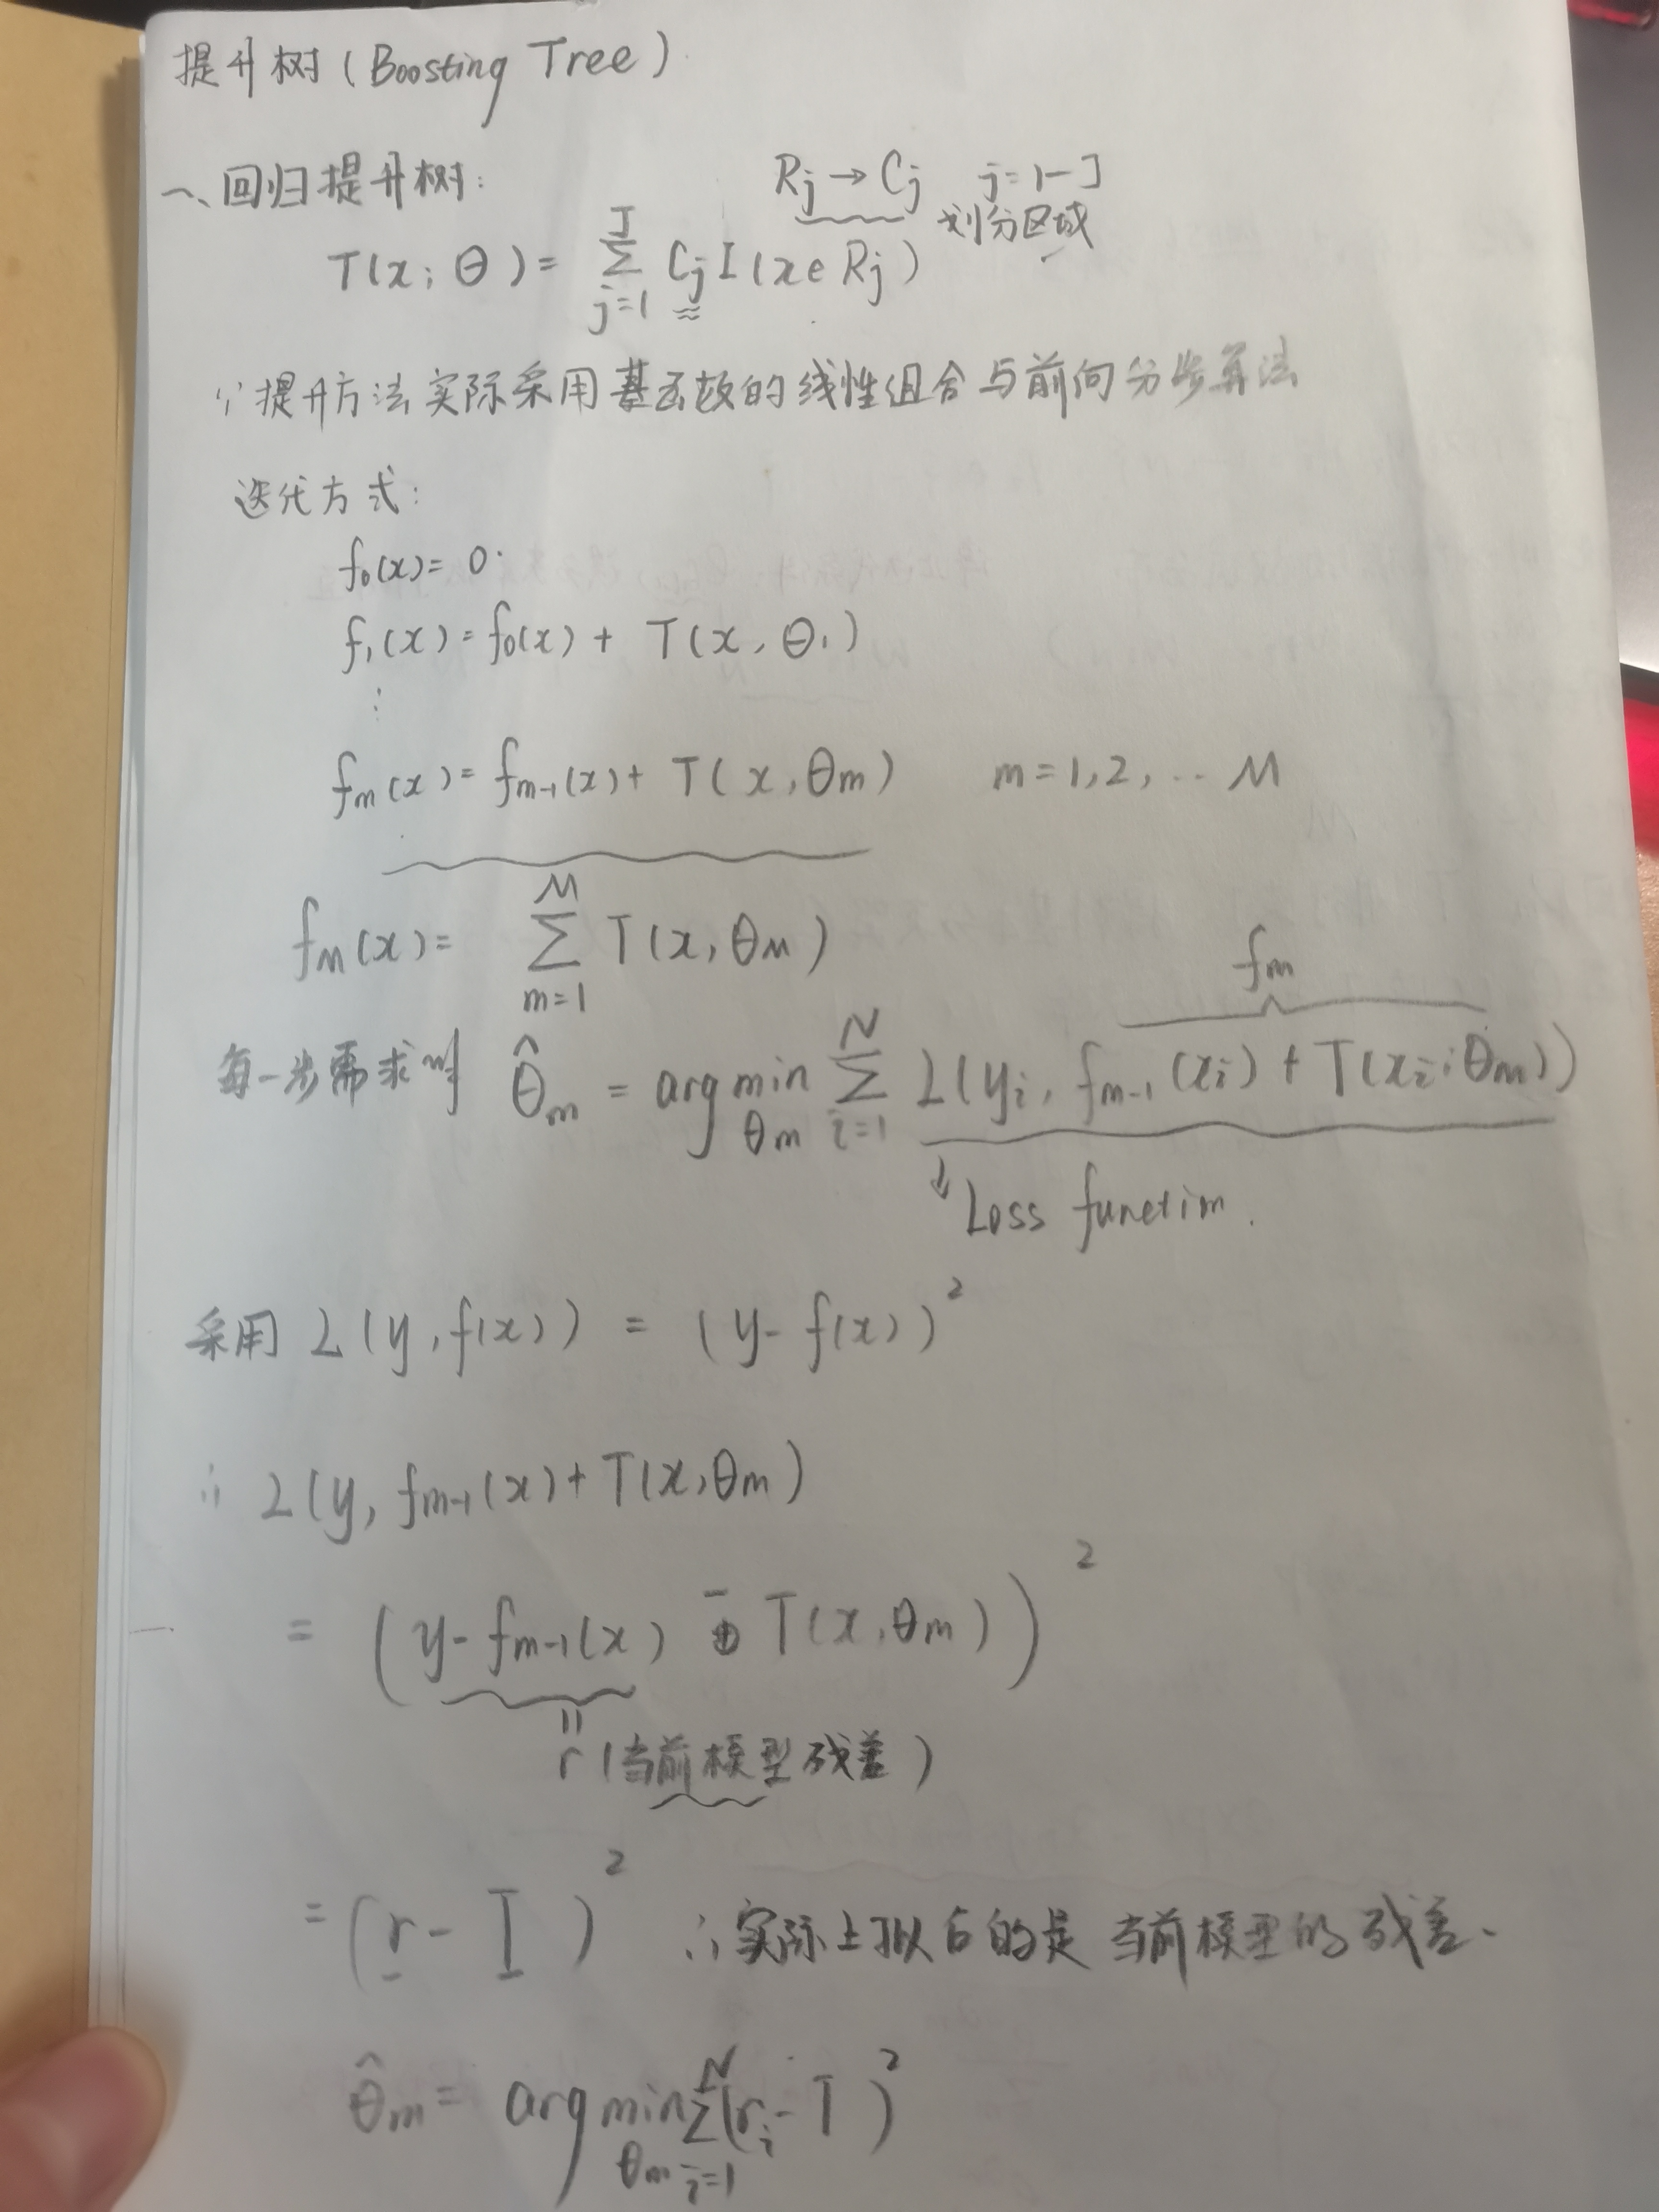 提升树(Boosting Tree)
一、回归提升树:
Rj→Cj j=1-J
划分区域
T(x;θ)= ∑_{j=1}^{J} Cj I(x∈Rj)
提升方法实际采用基函数的线性组合与前向分步算法
迭代方式:
f₀(x)=0
f₁(x)=f₀(x)+ T(x,θ₁)
⋮
fm(x)=fm-1(x)+ T(x,θm) m=1,2,…M
fM(x)= ∑_{m=1}^{M} T(x,θM)
fm
每一步需求 θ̂m = arg min_{θm} ∑_{i=1}^{N} L(yi, fm-1(xi)+T(xi;θm))
↓Loss function.
采用 L(y,f(x)) = (y-f(x))²
∴ L(y,fm-1(x)+T(x,θm)
= (y-fm-1(x) - T(x,θm))²
=
r(当前模型残差)
=(r-T)² ∴实际上拟合的是当前模型的残差.
θ̂m= arg min_{θm} ∑_{i=1}^{N}(ri-T)²